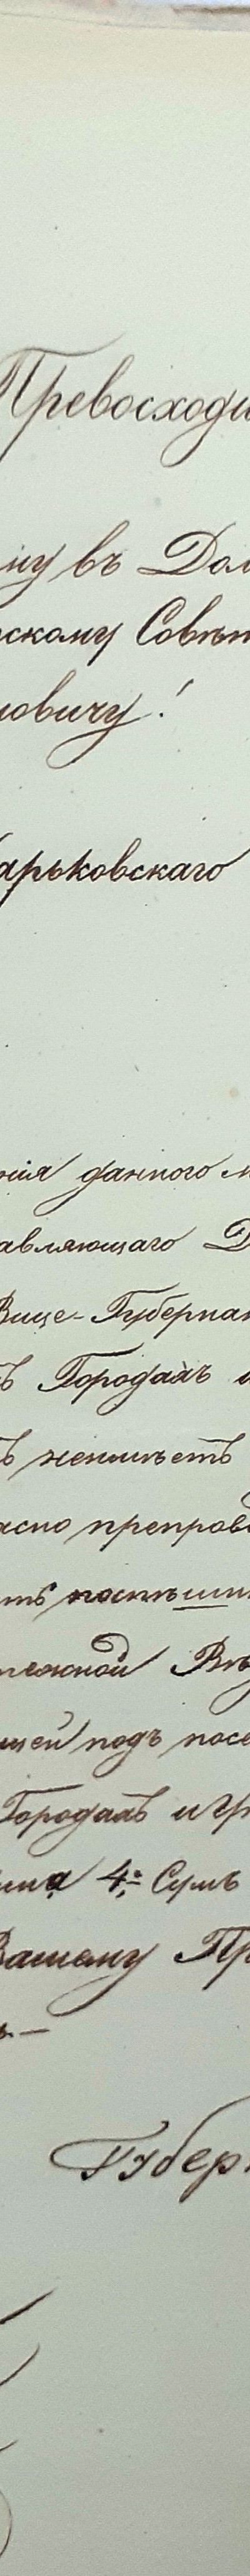 Превосходи
ну въ Дол
рскому Совѣт
новичу!
арьковскаго
нія данного м
авляющаго Д
Вице-Губерна
ъ Городахъ и
ъ
асно препрово
ть поспѣши
тежной Вѣ
шей подъ посе
Городахъ и гр
4: Сумъ
Вашему Пр
ъ.—
Губерн